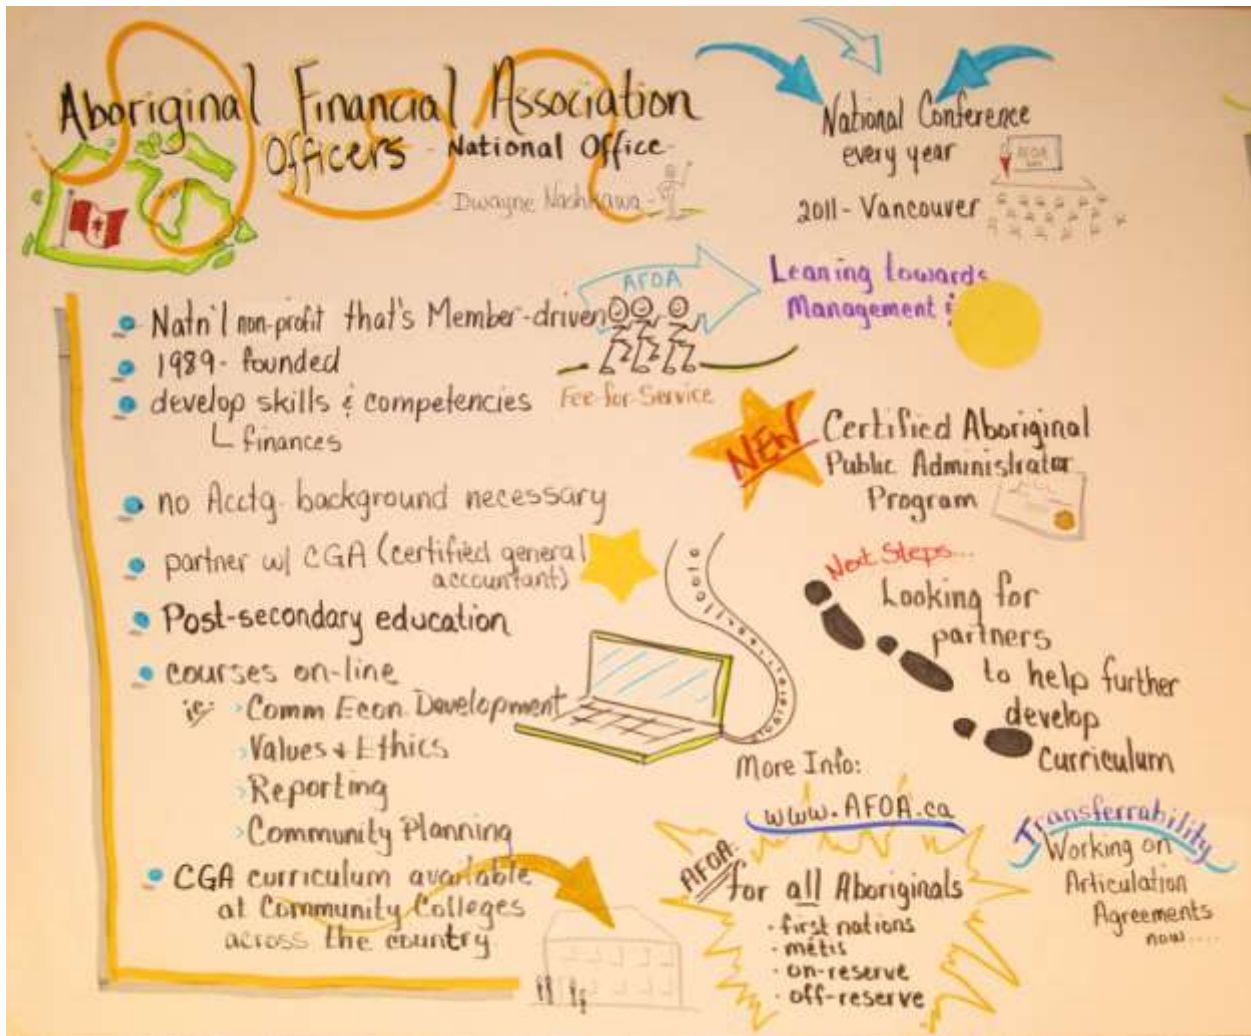 Aboriginal Financial Association
Officers - National Office -
- Dwayne Nashkawa -
National Conference
every year
AFOA
2011 - Vancouver
• Natn'l non-profit that's Member-driven
• 1989 - founded
• develop skills & competencies
finances
• no Acctg. background necessary
• partner w/ CGA (certified general
accountant)
• Post-secondary education
• courses on-line
ie: > Comm Econ. Development
> Values & Ethics
> Reporting
> Community Planning
• CGA curriculum available
at Community Colleges
across the country
AFOA
Fee-for-Service
Leaning towards
Management &
NEW
Certified Aboriginal
Public Administrator
Program
Next Steps...
Looking for
partners
to help further
develop
Curriculum
More Info:
www.AFOA.ca
AFOA:
for all Aboriginals
• first nations
• métis
• on-reserve
• off-reserve
Transferrability
Working on
Articulation
Agreements
now....